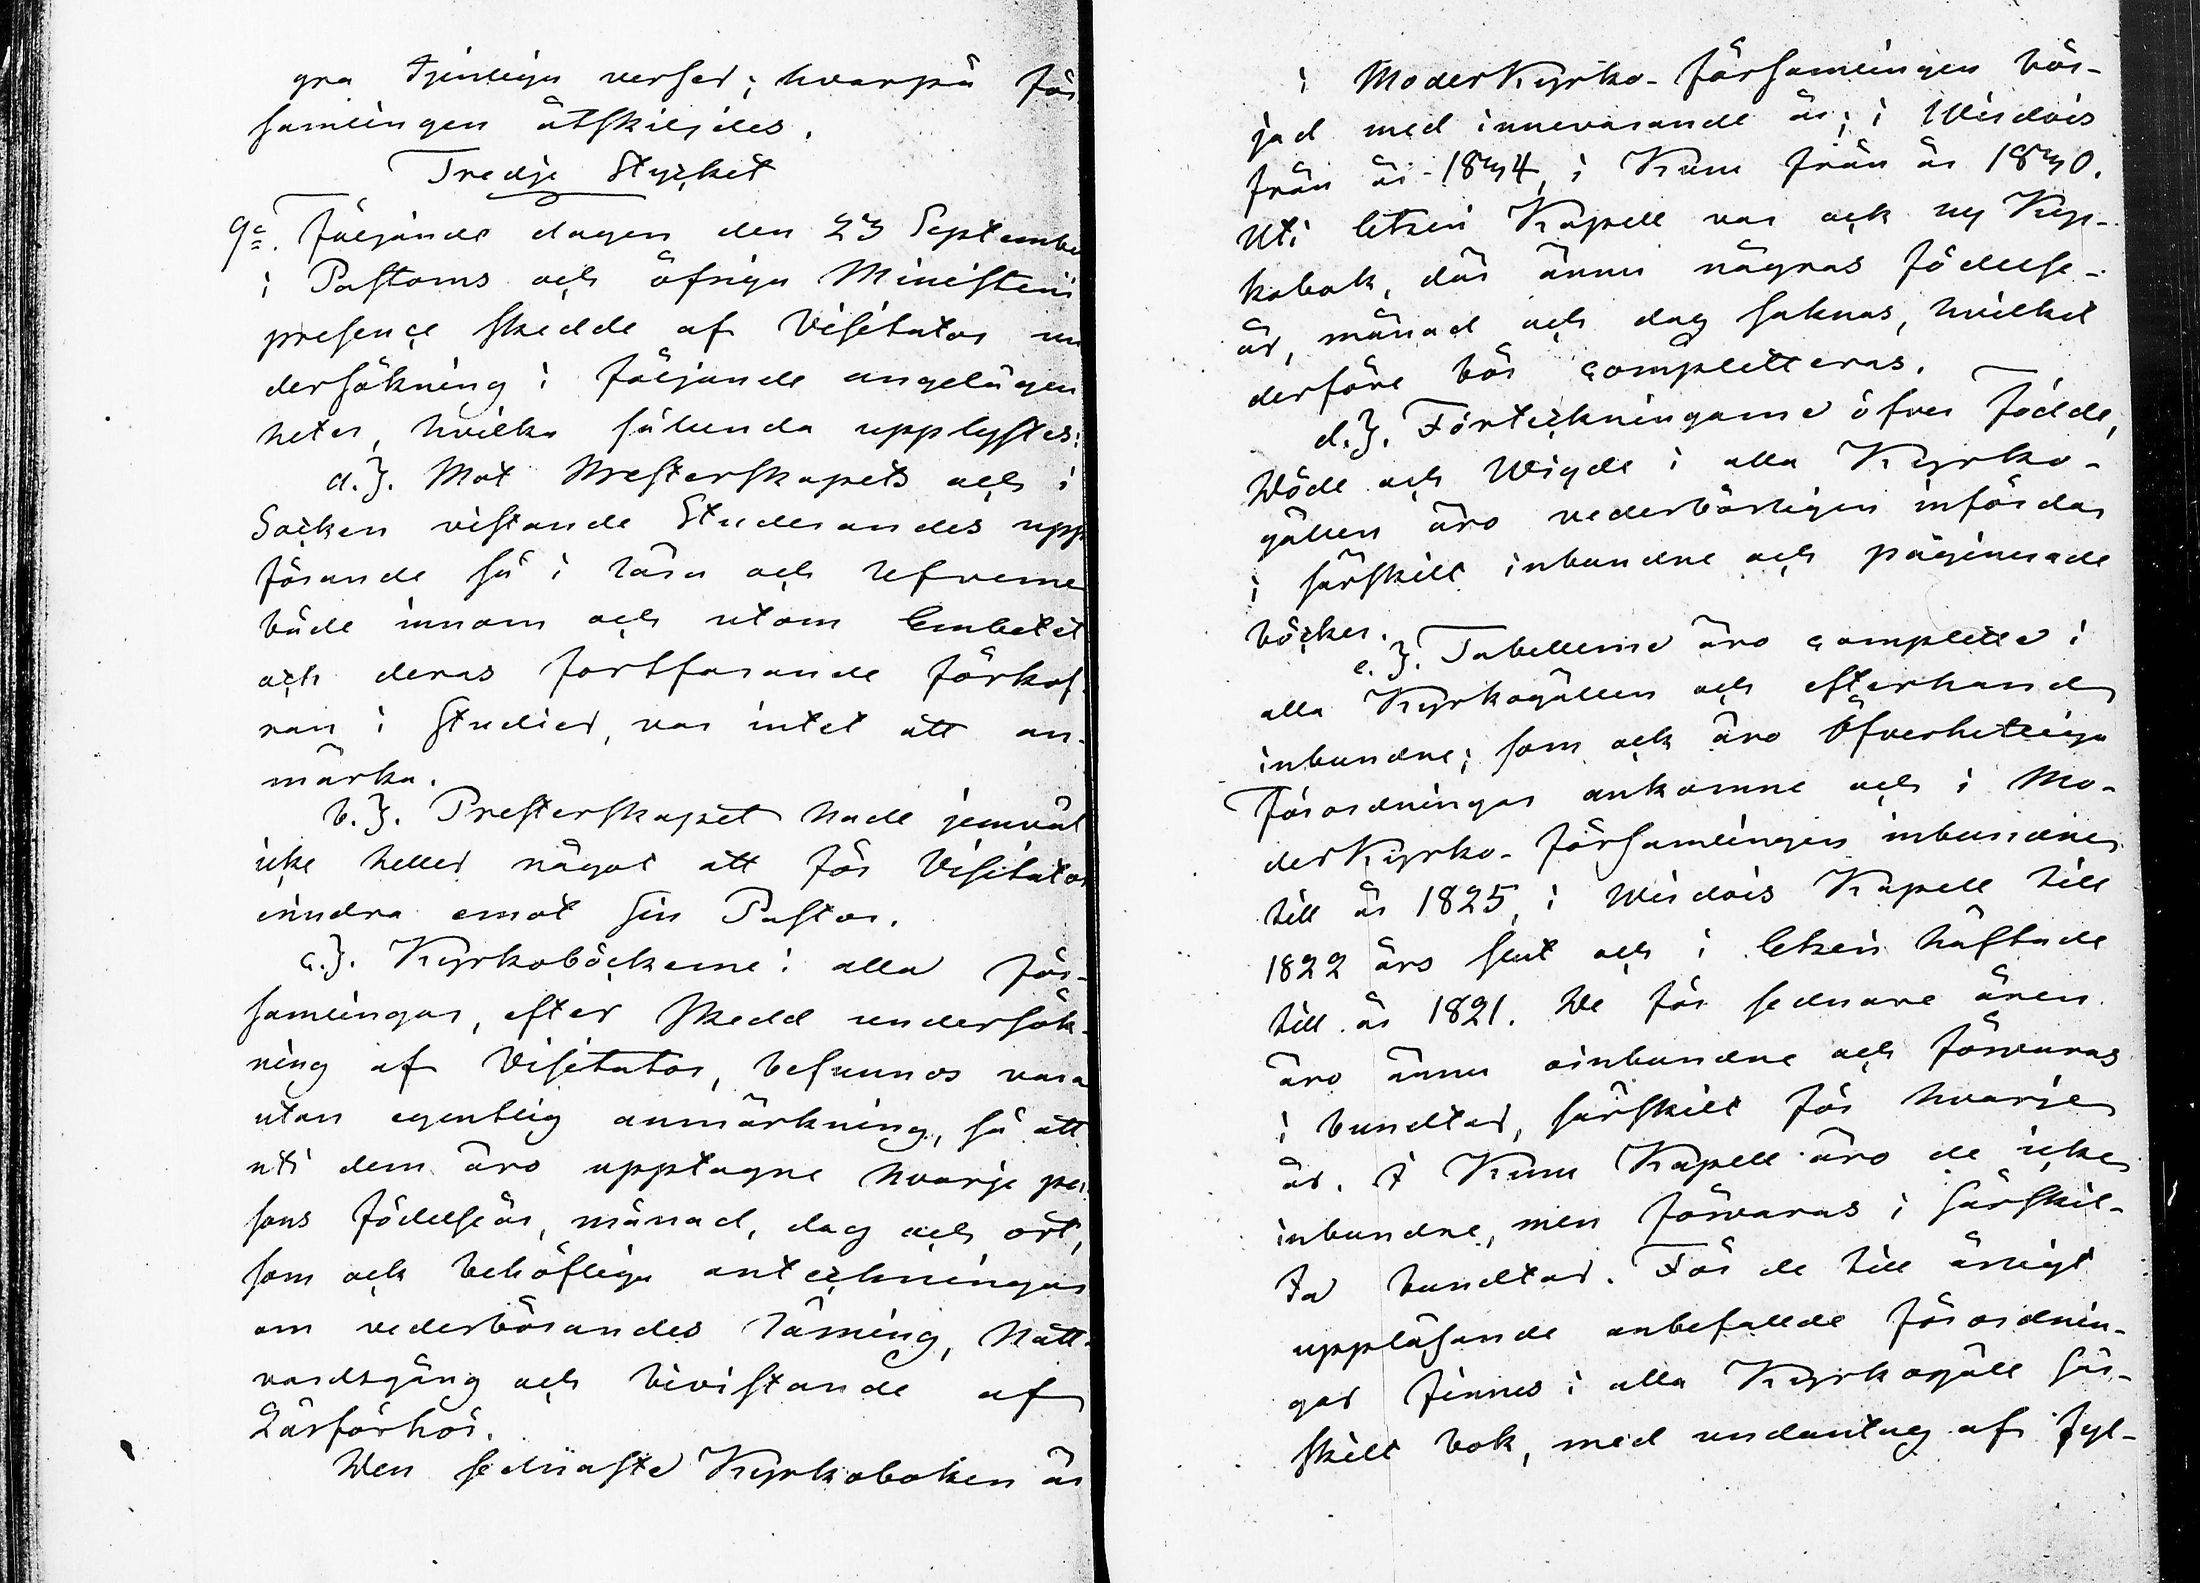 gra tjenliga verser; hvarpå för-
samlingen åtskiljdes.
Tredje Stycket
9de. Följande dagen den 23 September
i Pastorns och öfriga Ministerii
presence skedde af Visitator un
dersökning i följande angelägen
heter, hvilka sålunda upplystes:
a.). Mot Presterskapets och i
Socken vistande Studerandes upp
förande så i lära och lefverne
både innom och utom Embetet
och deras fortfarande förkof-
ran i Studier, var intet att an-
märka.
b.). Presterskapet hade jemväl
icke heller något att för Visitator
andra emot sin Pastor.
c.). Kyrkoböckerne i alla för-
samlingar, efter skedd undersök-
ning af Visitator, befunnos vara
utan egentlig anmärkning, så att
uti dem äro upptagne hvarje per
sons födelseår, månad, dag och ort,
som ock behöfliga anteckningar
om vederbörandes läsning, Natt-
vardsgång och bivistande af
Läsförhör.
Den sednaste Kyrkoboken är
i ModerKyrko-församlingen bör-
jad med innevarande år; i Wirdois
från år 1834, i Kuru från år 1830.
Uti Etseri Kapell var ock ny Kyr-
kobok, där ännu någras födelse-
år, månad och dag saknas, hvilket
derföre bör completteras.
d.). Förteckningarne öfver Födde,
Döde och Wigde i alla Kyrko-
gällen äro vederbörligen införda
i särskilt inbundne och paginerade
böcker.
e.). Tabellerne äro complette i
alla Kyrkogällen och efterhand
inbundne; som ock äro Öfverhetliga
Förordningar ankomne och i Mo-
derKyrko-församlingen inbundne
till år 1825, i Wirdois Kapell till
1822 års slut och i Etseri häftade
till år 1821. De för sednare åren
äro ännu oinbundne och förvaras
i bundtar, särskilt för hvarje
år. I Kuru Kapell äro de icke
inbundne, men förvaras i särskil-
ta bundtar. För de till årligt
uppläsande anbefallde förordnin-
gar finnes i alla Kyrkogäll sär-
skilt bok, med undantag af fyl-